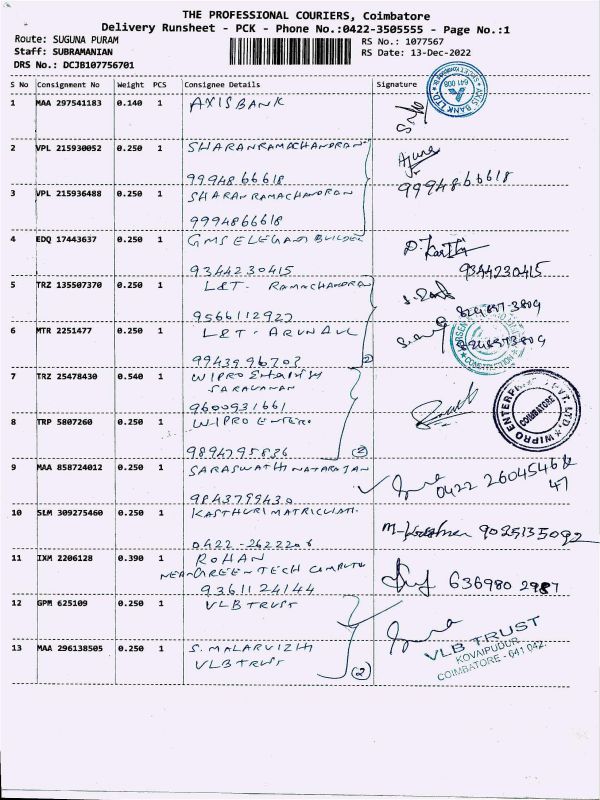 THE PROFESSIONAL COURIERS, Coimbatore
Delivery Runsheet - PCK - Phone No.:0422-3505555 - Page No.:1
Route: SUGUNA PURAM
RS No.: 1077567
Staff: SUBRAMANIAN
RS Date: 13-Dec-2022
DRS No.: DCJB107756701
S No Consignment No Weight PCS Consignee Details Signature
1 MAA 297541183 0.140 1 AXIS BANK
AXIS BANK LTD. 641 008
2 VPL 215930052 0.250 1 SHARANRAMACHANDRAN
9994866618
9994866618
3 VPL 215936488 0.250 1 SHARANRAMACHANDRAN
9994866618
4 EDQ 17443637 0.250 1 GMS ELEGANT BUILDER
9344230415
9344230415
5 TRZ 135507370 0.250 1 L&T. RAMACHANDRAN
9566112927
6 MTR 2251477 0.250 1 L&T. ARUN
CONSTRUCTION
(2)
7 TRZ 25478430 0.540 1 WIPRO
SARAVANAN
9600931661
8 TRP 5807260 0.250 1 WIPRO ENTER.
9894795836
(2)
WIPRO ENTERPRISES PVT. LTD. COIMBATORE
9 MAA 858724012 0.250 1 SARASWATHI NATARAJAN
9843799430
0422 2604546 &
47
10 SLM 309275460 0.250 1 KASTHURI MATRICULATI.
0422-
9025135092
11 IXM 2206128 0.390 1 ROHAN
NEAR GREEN TECH COMPUTER
9361124144
636980 2987
12 GPM 625109 0.250 1 VLB TRUST
VLB TRUST
KOVAIPUDUR
COIMBATORE - 641 042.
13 MAA 296138505 0.250 1 S. MALARVIZHI
VLB TRUST
(2)